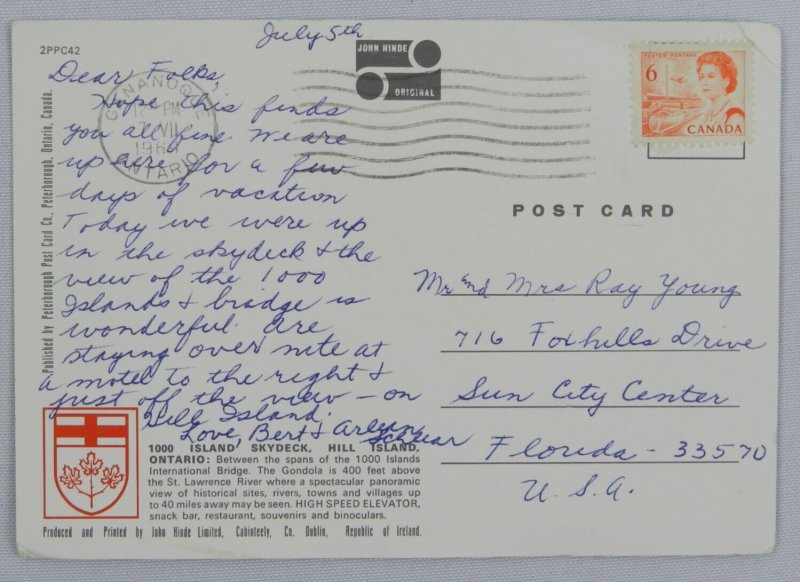 2PPC42
July 5th
JOHN HINDE
ORIGINAL
6
POSTES POSTAGE
CANADA
GANANOQUE
PM
VII
196
ONTARIO
Dear Folks,
Hope this finds
you all fine. We are
up here for a few
days of vacation
Today we were up
in the skydeck & the
view of the 1000
Islands & bridge is
wonderful. Are
staying over nite at
a motel to the right &
just off the view – on
Hill Island.
Love, Bert & Arlean
POST CARD
Mr and Mrs Ray Young
716 Foxhills Drive
Sun City Center
Florida - 33570
U.S.A.
1000 ISLAND SKYDECK, HILL ISLAND,
ONTARIO: Between the spans of the 1000 Islands
International Bridge. The Gondola is 400 feet above
the St. Lawrence River where a spectacular panoramic
view of historical sites, rivers, towns and villages up
to 40 miles away may be seen. HIGH SPEED ELEVATOR,
snack bar, restaurant, souvenirs and binoculars.
Produced and Printed by John Hinde Limited, Cabinteely, Co. Dublin, Republic of Ireland.
Published by Peterborough Post Card Co., Peterborough, Ontario, Canada.